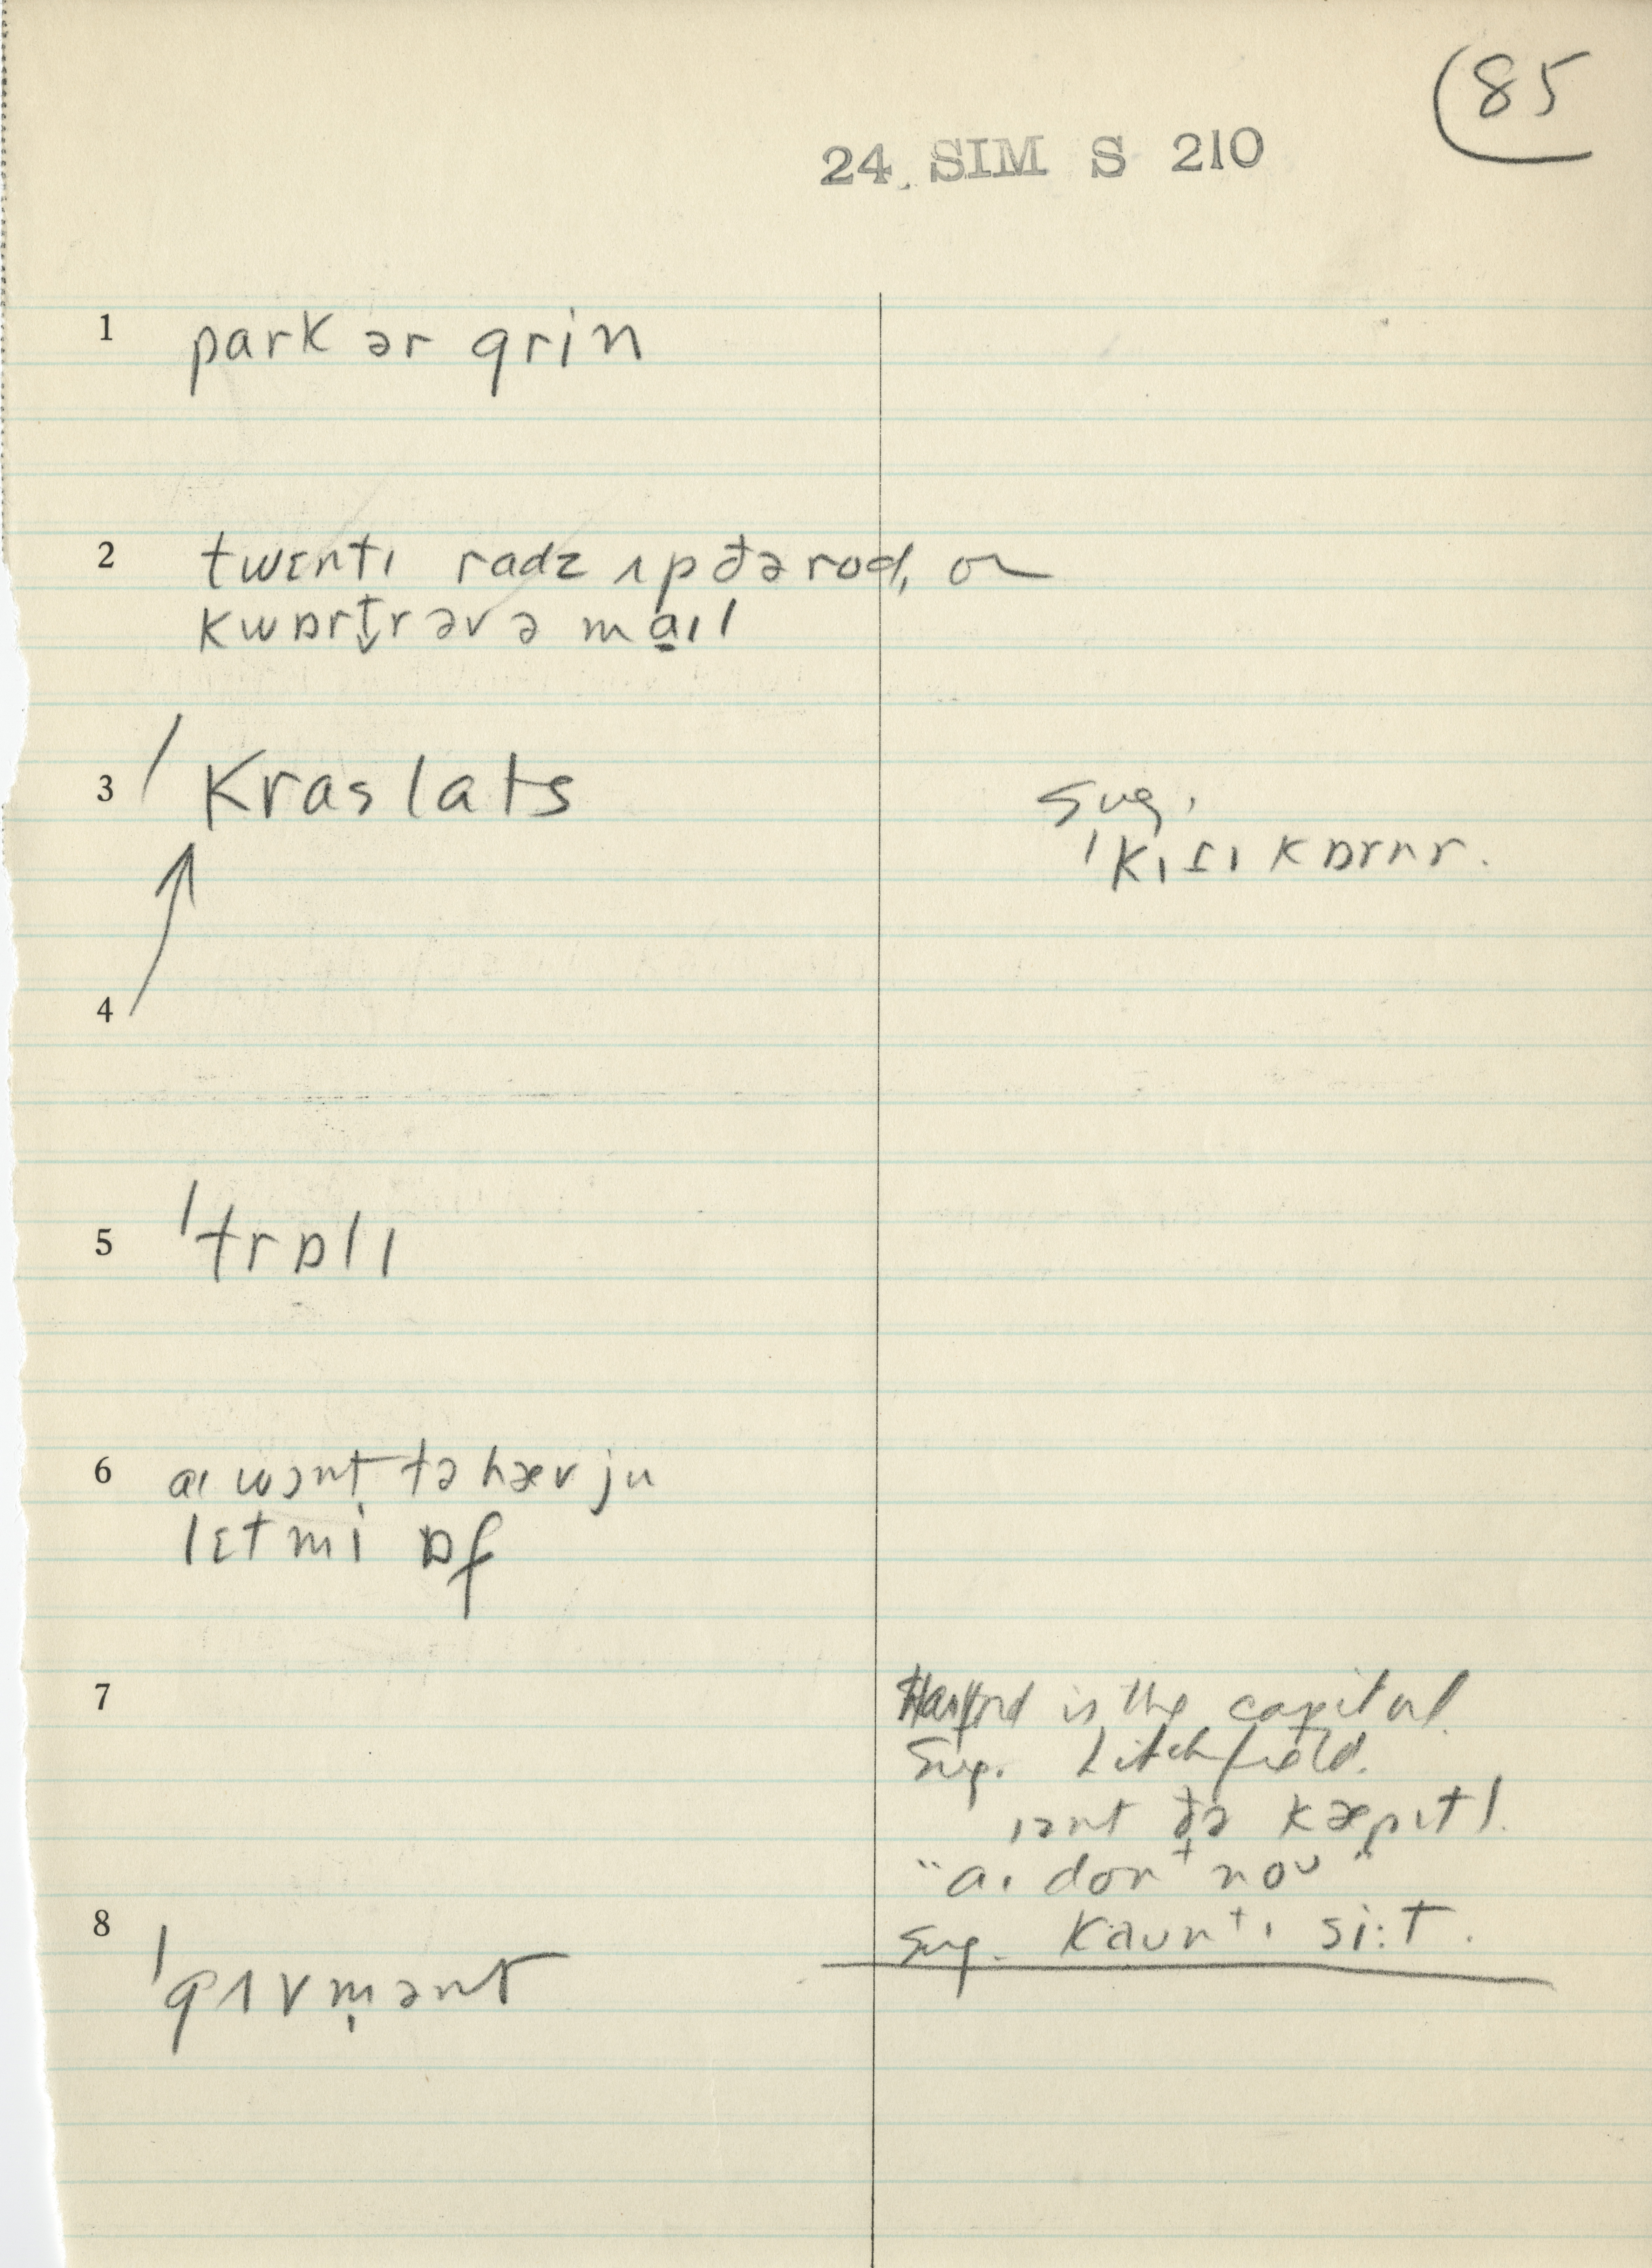 85
24. SIM S 210
1 park ər grin
2 twɛntɪ radz ʌp ðə rod, or
kwɒrtr əv ə maɪl
3 ˈkras lats
Sug.
ˈkɪtɪ kɒrnr.
4
5 ˈtrɒlɪ
6 aɪ wɔnt tə hæv ju
lɛt mi ɒf
7 Hartford is the capital.
Sug. Litchfield.
ɪənt ðə kæpɪtl.
"aɪ don't noʊ"
Sug. kauntɪ si:t.
8 ˈgʌvmənt